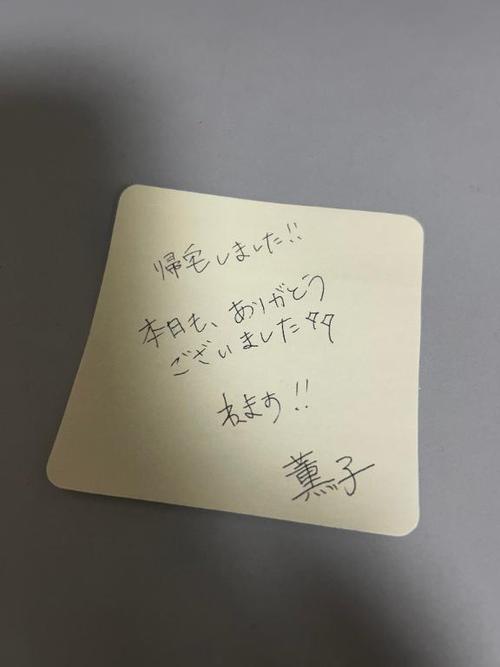 帰宅しました!!
本日も、ありがとう
ございましたタタ
ねます!!
薫子